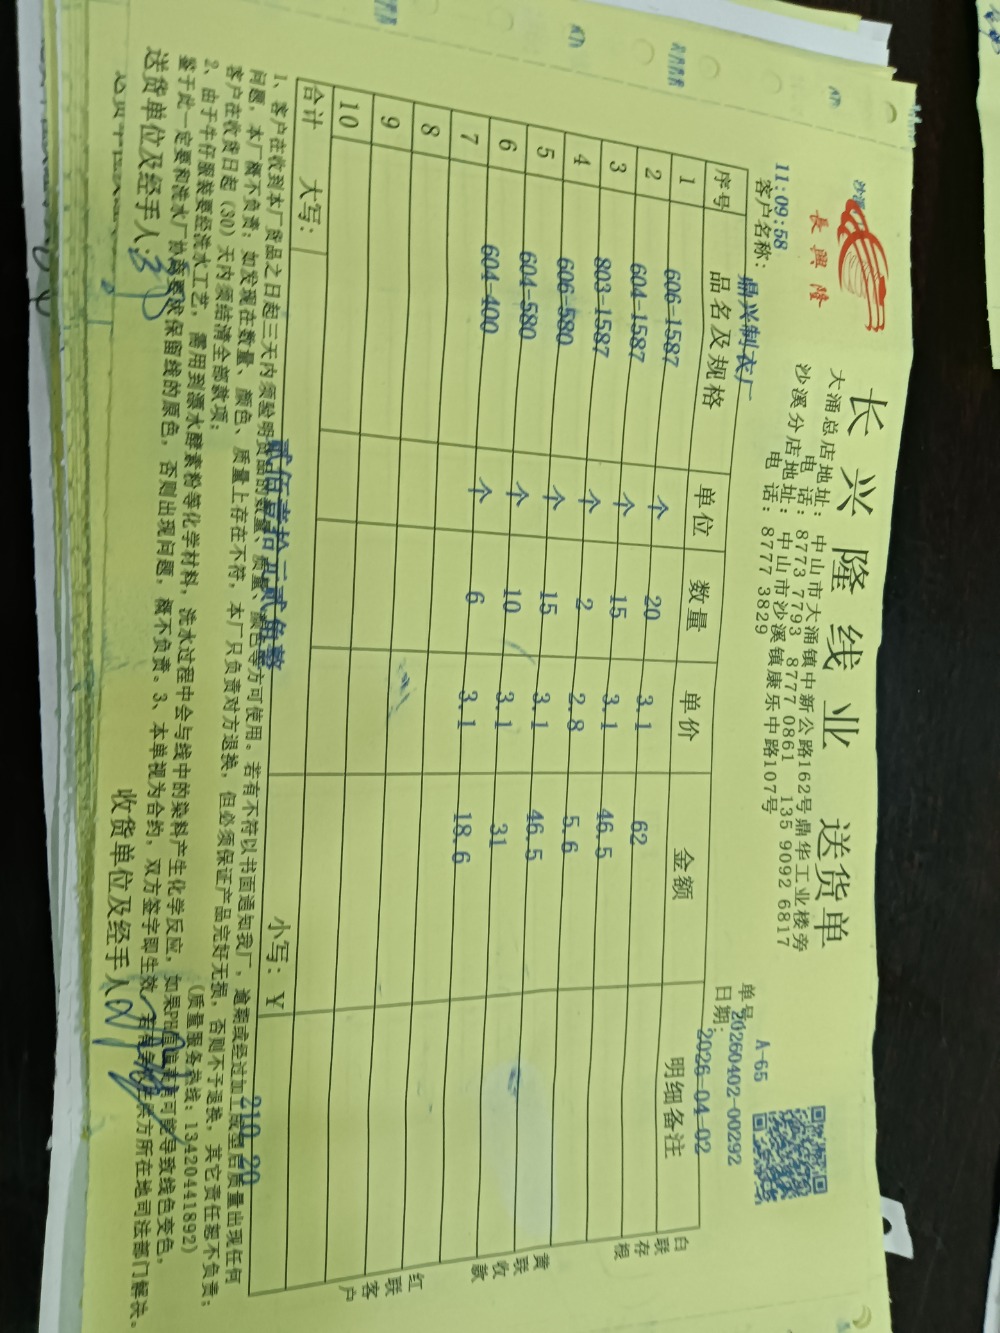 長興隆
长兴隆线业 送货单
大涌总店地址：中山市大涌镇中新公路162号鼎华工业楼旁
电 话：8773 7793 8777 0861 135 9092 6817
沙溪分店地址：中山市沙溪镇康乐中路107号
电 话：8777 3829
A-65
11:09:58
单号 20260402-00292
客户名称： 鼎兴制衣厂
日期： 2026-04-02
序号 品名及规格 单位 数量 单价 金额 明细备注
1 606-1587 个 20 3.1 62
2 604-1587 个 15 3.1 46.5
3 803-1587 个 2 2.8 5.6
4 606-580 个 15 3.1 46.5
5 604-580 个 10 3.1 31
6 604-400 个 6 3.1 18.6
7
8
9
10
合计 大写： 贰佰壹拾元贰角整 小写：￥ 210.20
白联存根
黄联收款
红联客户
1、客户在收到本厂货品之日起三天内须验明货品的数量、质量、颜色等方可使用。若有不符以书面通知我厂，逾期或经过加工成型后质量出现任何
问题，本厂概不负责；如发现在数量、颜色、质量上存在不符，本厂只负责对方退换，但必须保证产品完好无损，否则不予退换，其它责任恕不负责；
客户在收货日起（30）天内须结清全部款项；
（质量服务热线：13420441892）
2、由于牛仔服装要经洗水工艺，需用到漂水酵素粉等化学材料，洗水过程中会与线中的染料产生化学反应，如果PH值 有可能导致线色变色，
鉴于此一定要和洗水厂协 要求保留线的原色，否则出现问题，概不负责。3、本单视为合约，双方签字即生效， 方所在地司法部门解决。
送货单位及经手人：
收货单位及经手人